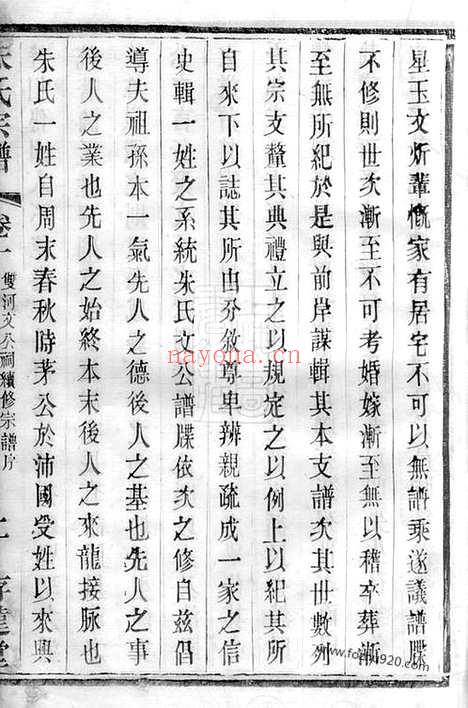 星玉文炘輩慨家有居宅不可以無譜乘遂議譜牒
不修則世次漸至不可考婚嫁漸至無以稽卒葬漸
至無所紀於是與前岸謀輯其本支譜次其世數列
其宗支釐其典禮立之以規定之以例上以紀其所
自來下以誌其所由分敘尊卑辨親疏成一家之信
史輯一姓之系統朱氏文公譜牒依次之修自茲倡
導夫祖孫本一氣先人之德後人之基也先人之事
後人之業也先人之始終本末後人之來龍接脉也
朱氏一姓自周末春秋時茅公於沛國受姓以來興
朱氏宗譜
卷一
雙河文公祠續修宗譜序
nayona.cn